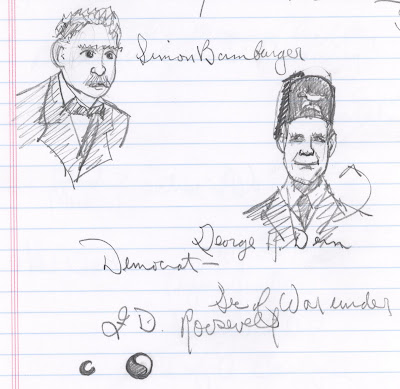 Simon Bamburger
George H. Dern
Democrat —
Sec of War under
F. D. Roosevelt